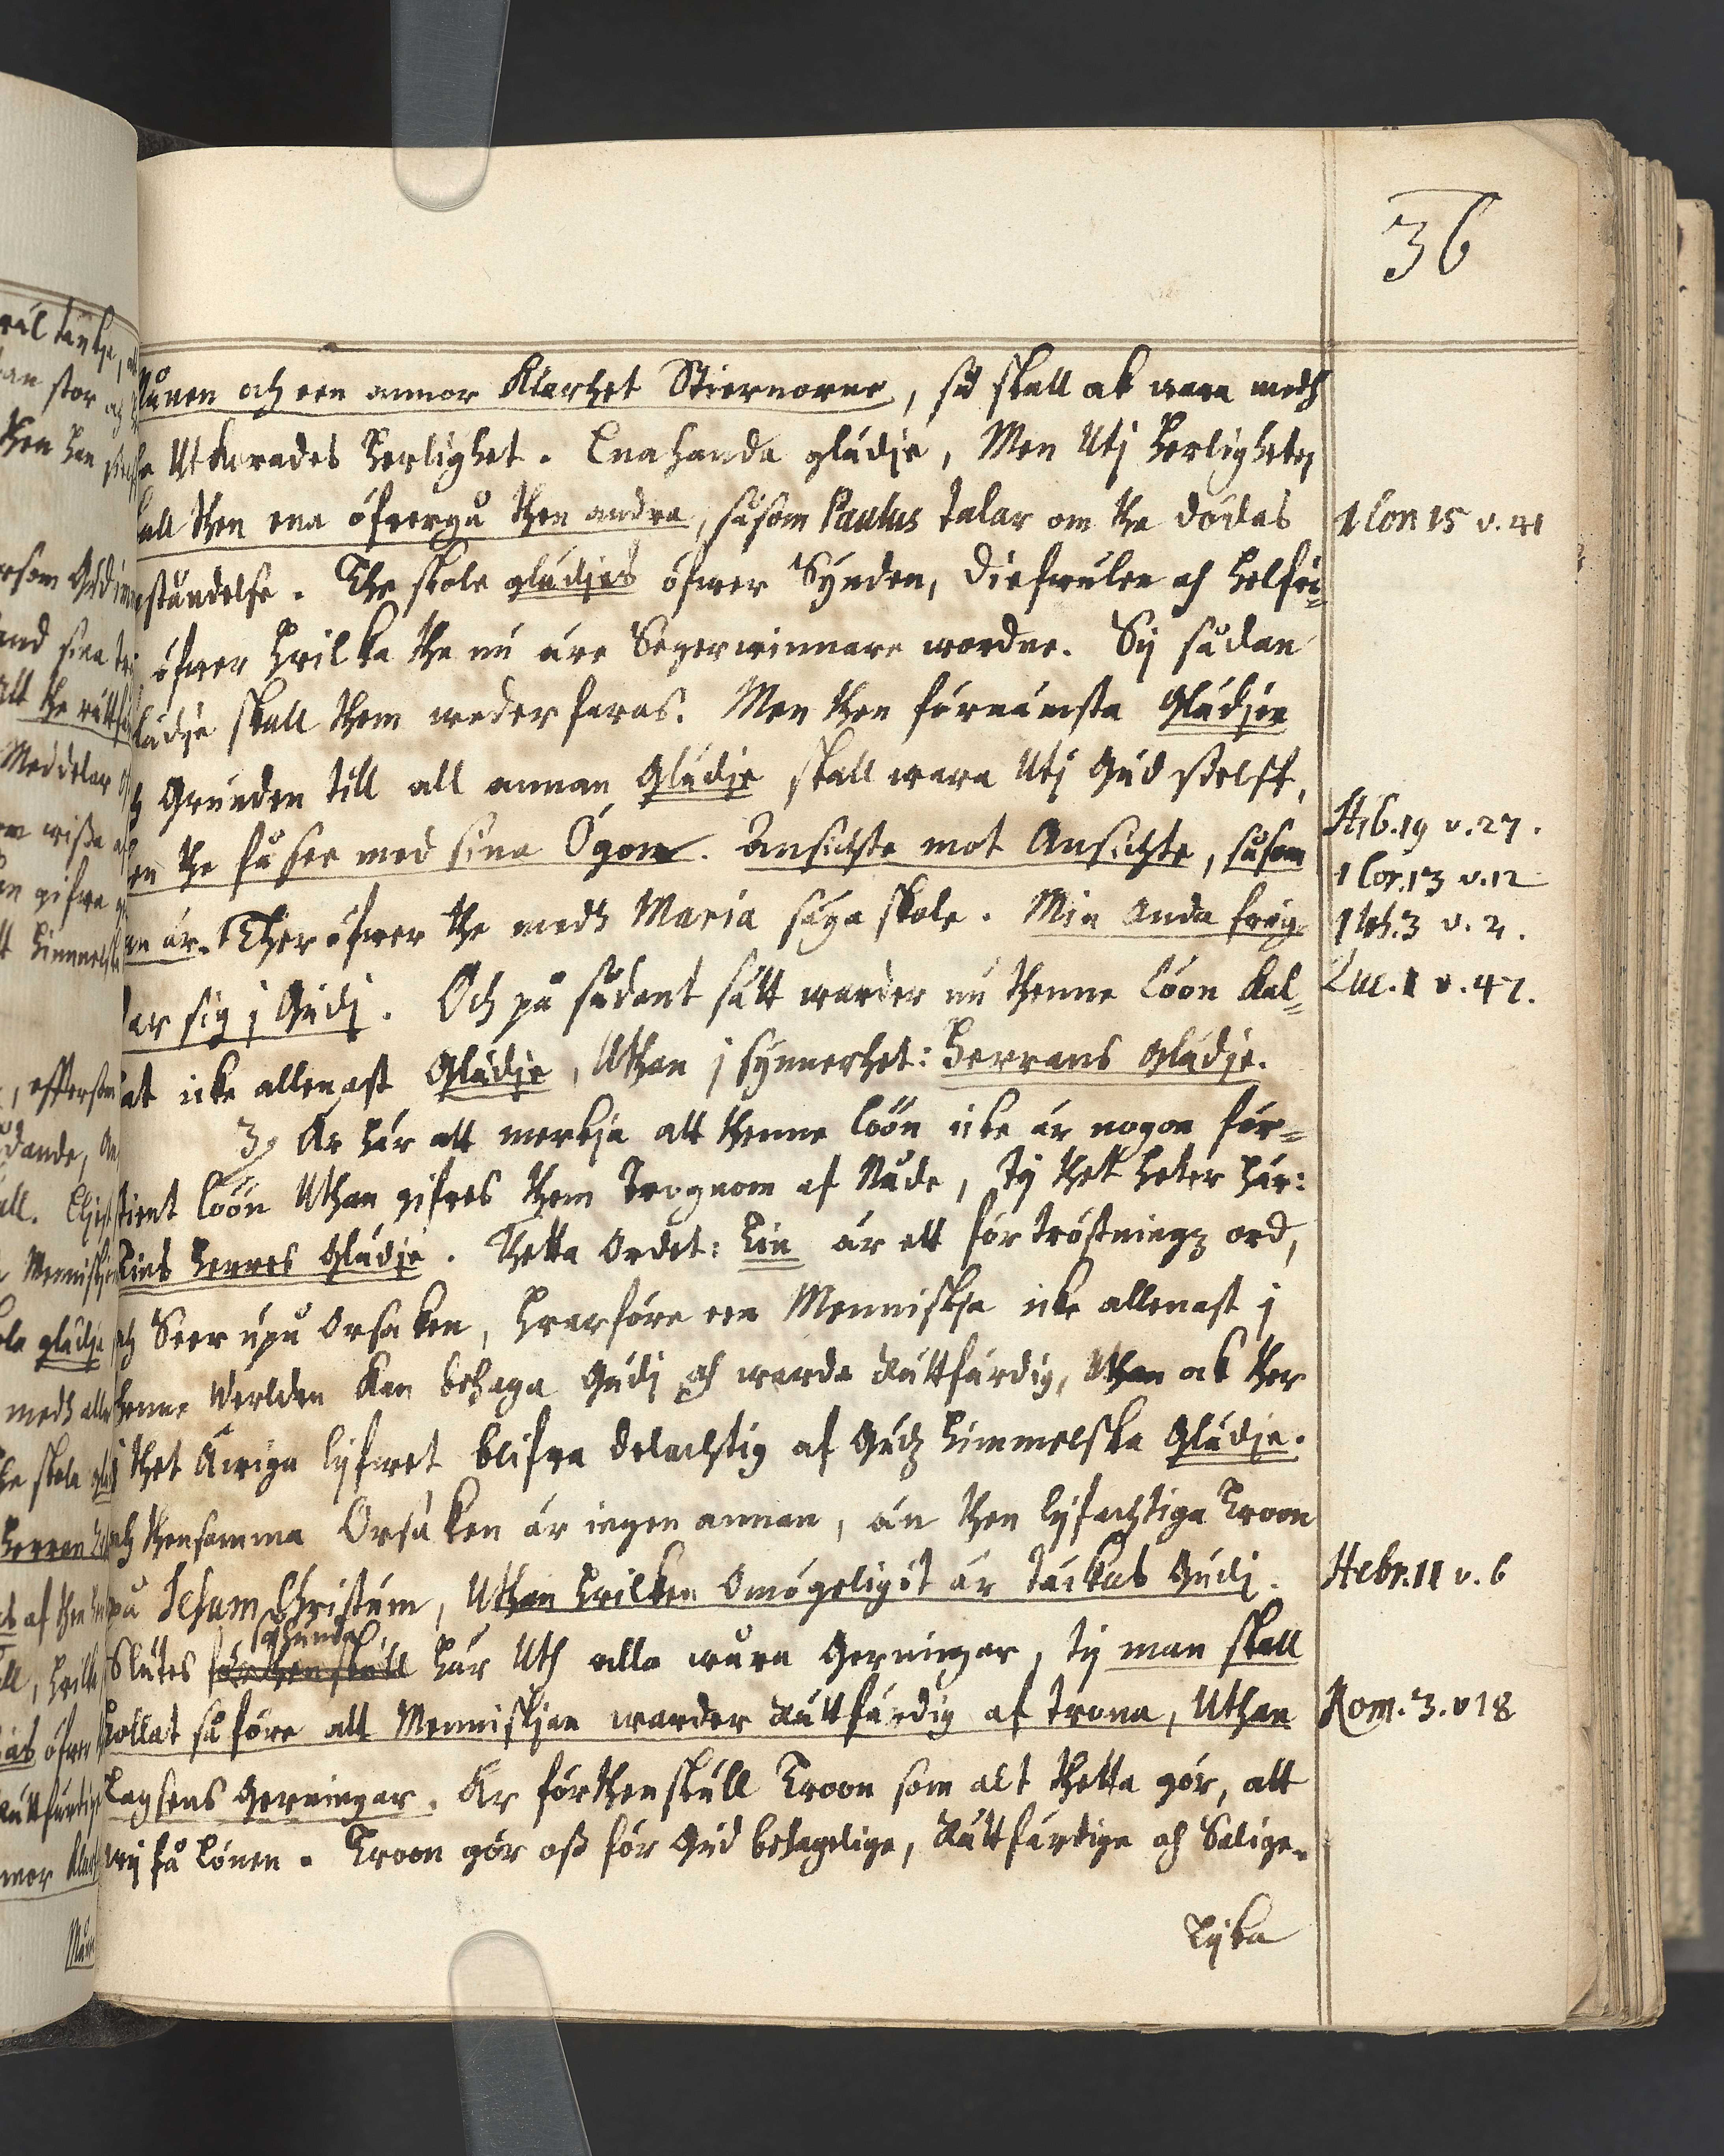 36
Månen och een annor Klarhet Stiernorne, så skall ok wara medh
the Utkorades Herlighet. Enahanda glädie, Men Utj Herligheten
skall then ena öfwergå then andra, såsom Paulus talar om the dödas
1 Cor. 15 v. 41
upståndelse. The skole glädjas öfwer Synden, Diefwulen och helfwe=
öfwer hvilka the nu äre Segerwinnare wordne. Sij sådan
glädje skall them wederfaras. Men then förnämsta Glädjen
och Grunden till all annan Glädje skall wara Utj Gud sielff,
then the få see med sina Ögon. Ansichte mot Ansichte, såsom
Hib. 19 v. 27.
1 Cor. 13 v. 12
han är. Ther öfwer the medh Maria säya skole. Min Anda fröy=
1 Joh. 3 v. 2.
dar sig j Gudj. Och på sådant sätt warder nu thenne Löön kal=
Luc. 1 v. 47.
lat icke allenast Glädje, Uthan j synnerhet: Herrans Glädje.
3. Är här att merkja att thenne Löön icke är nogon för=
tient Löön Uthan gifwes them Trognom af Nåde, Ty thet heter här:
Tins Herres Glädje. Thetta Ordet: Tin är ett förtröstningz ord,
och Seer upå Orsaken, hwarföre een Menniskja icke allenast j
thenne Werlden kan behaga Gudj och warda Rättfärdig, Uthan ok ther
j thet Äwiga lijfwet blifwa delachtig af Gudz himmelska Glädje.
och thensamma Orsaken är ingen annan, än then lijfachtiga Troon
på Jesum Christum, Uthan hvilken Omögeligit är täckas Gudj.
Hebr. 11 v. 6
Slutes förthenskull här Uth alla wåra Gerningar, Ty man skall
hollat så före att Menniskjan warder Rättfärdig af trona, Uthan
Rom. 3. v 18
Lagsens Gerningar. Är förthenskull Troon som alt thetta gör, att
wij få Lönen. Troon gör oß för Gud behagelige, Rättfärdige och Salige.
Lijka